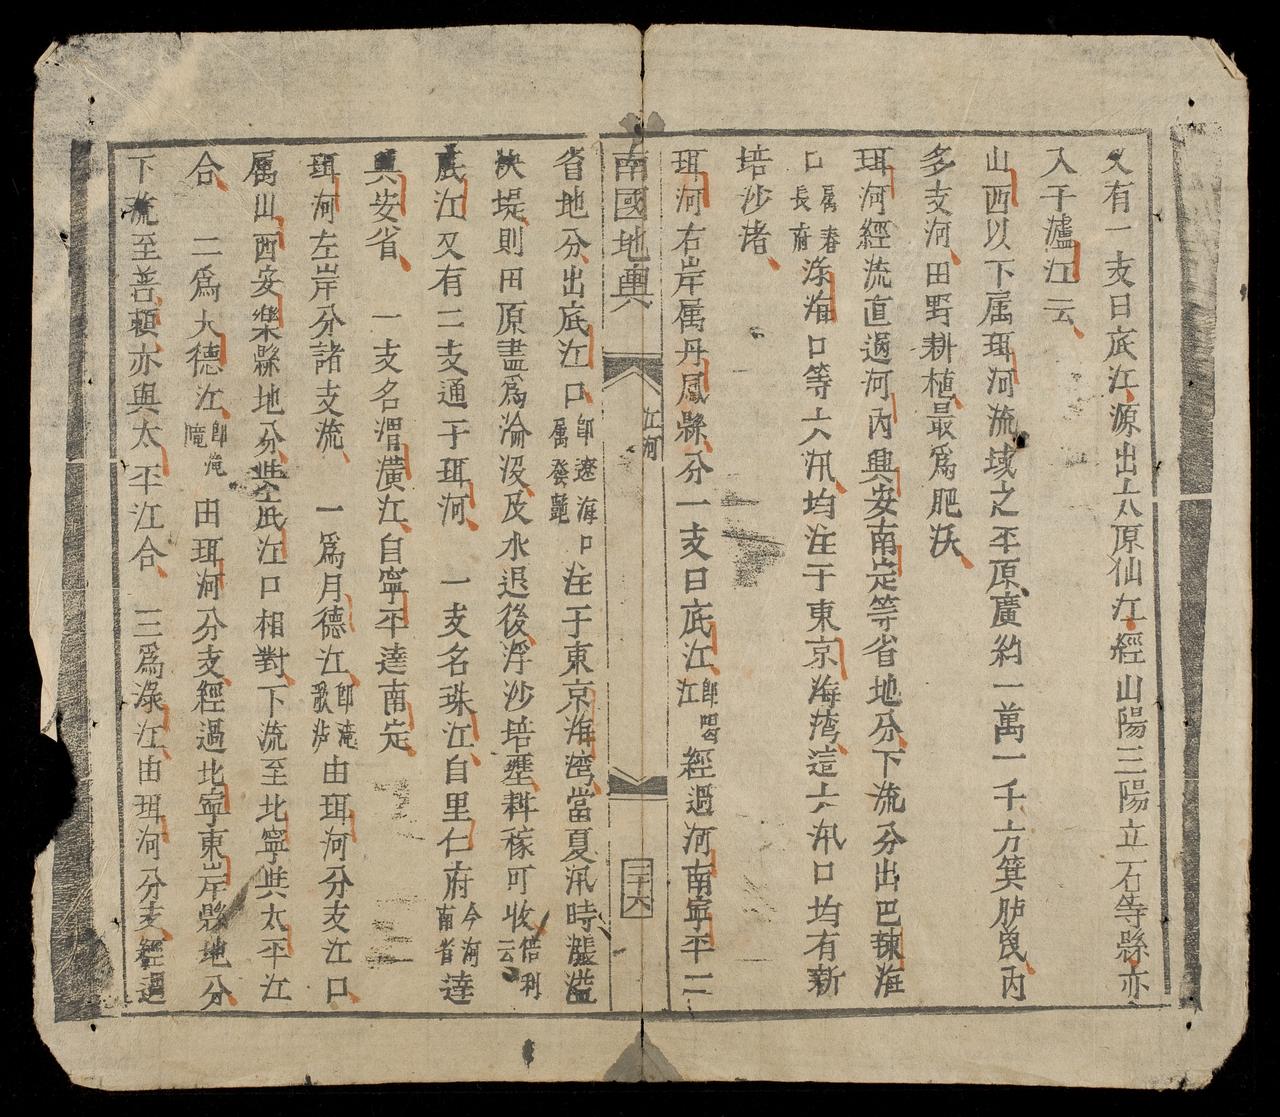 又有一支曰底江源出太原仙江經山陽三陽立石等縣亦
入于瀘江云
山西以下属珥河流域之平原廣約一萬一千方箕胪𠬠内
多支河田野耕植最爲肥沃
珥河經流直過河内興安南定等省地分下流分出巴辣海
口属春長府涂海口等六汛均注于東京海湾這六汛口均有新
培沙渚
珥河右岸属丹鳳縣分一支曰底江即喝江經過河南寧平二
南國地輿
江河
二十六
省地分出底江口即遼海口属發艶注于東京海湾當夏汛時漲溢
决堤則田原盡爲淪没及水退後浮沙培壅耕稼可收倍利云
底江又有二支通于珥河 一支名珠江自里仁府今河南省達
興安省 一支名渭潢江自寧平達南定
珥河左岸分諸支流 一爲月德江即滝歌泸由珥河分支江口
属山西安樂縣地分与底江口相對下流至北寧与太平江
合 二爲大德江由珥河分支經過北寧東岸縣地分
下流至善頼亦與太平江合 三爲淥江由珥河分支經過